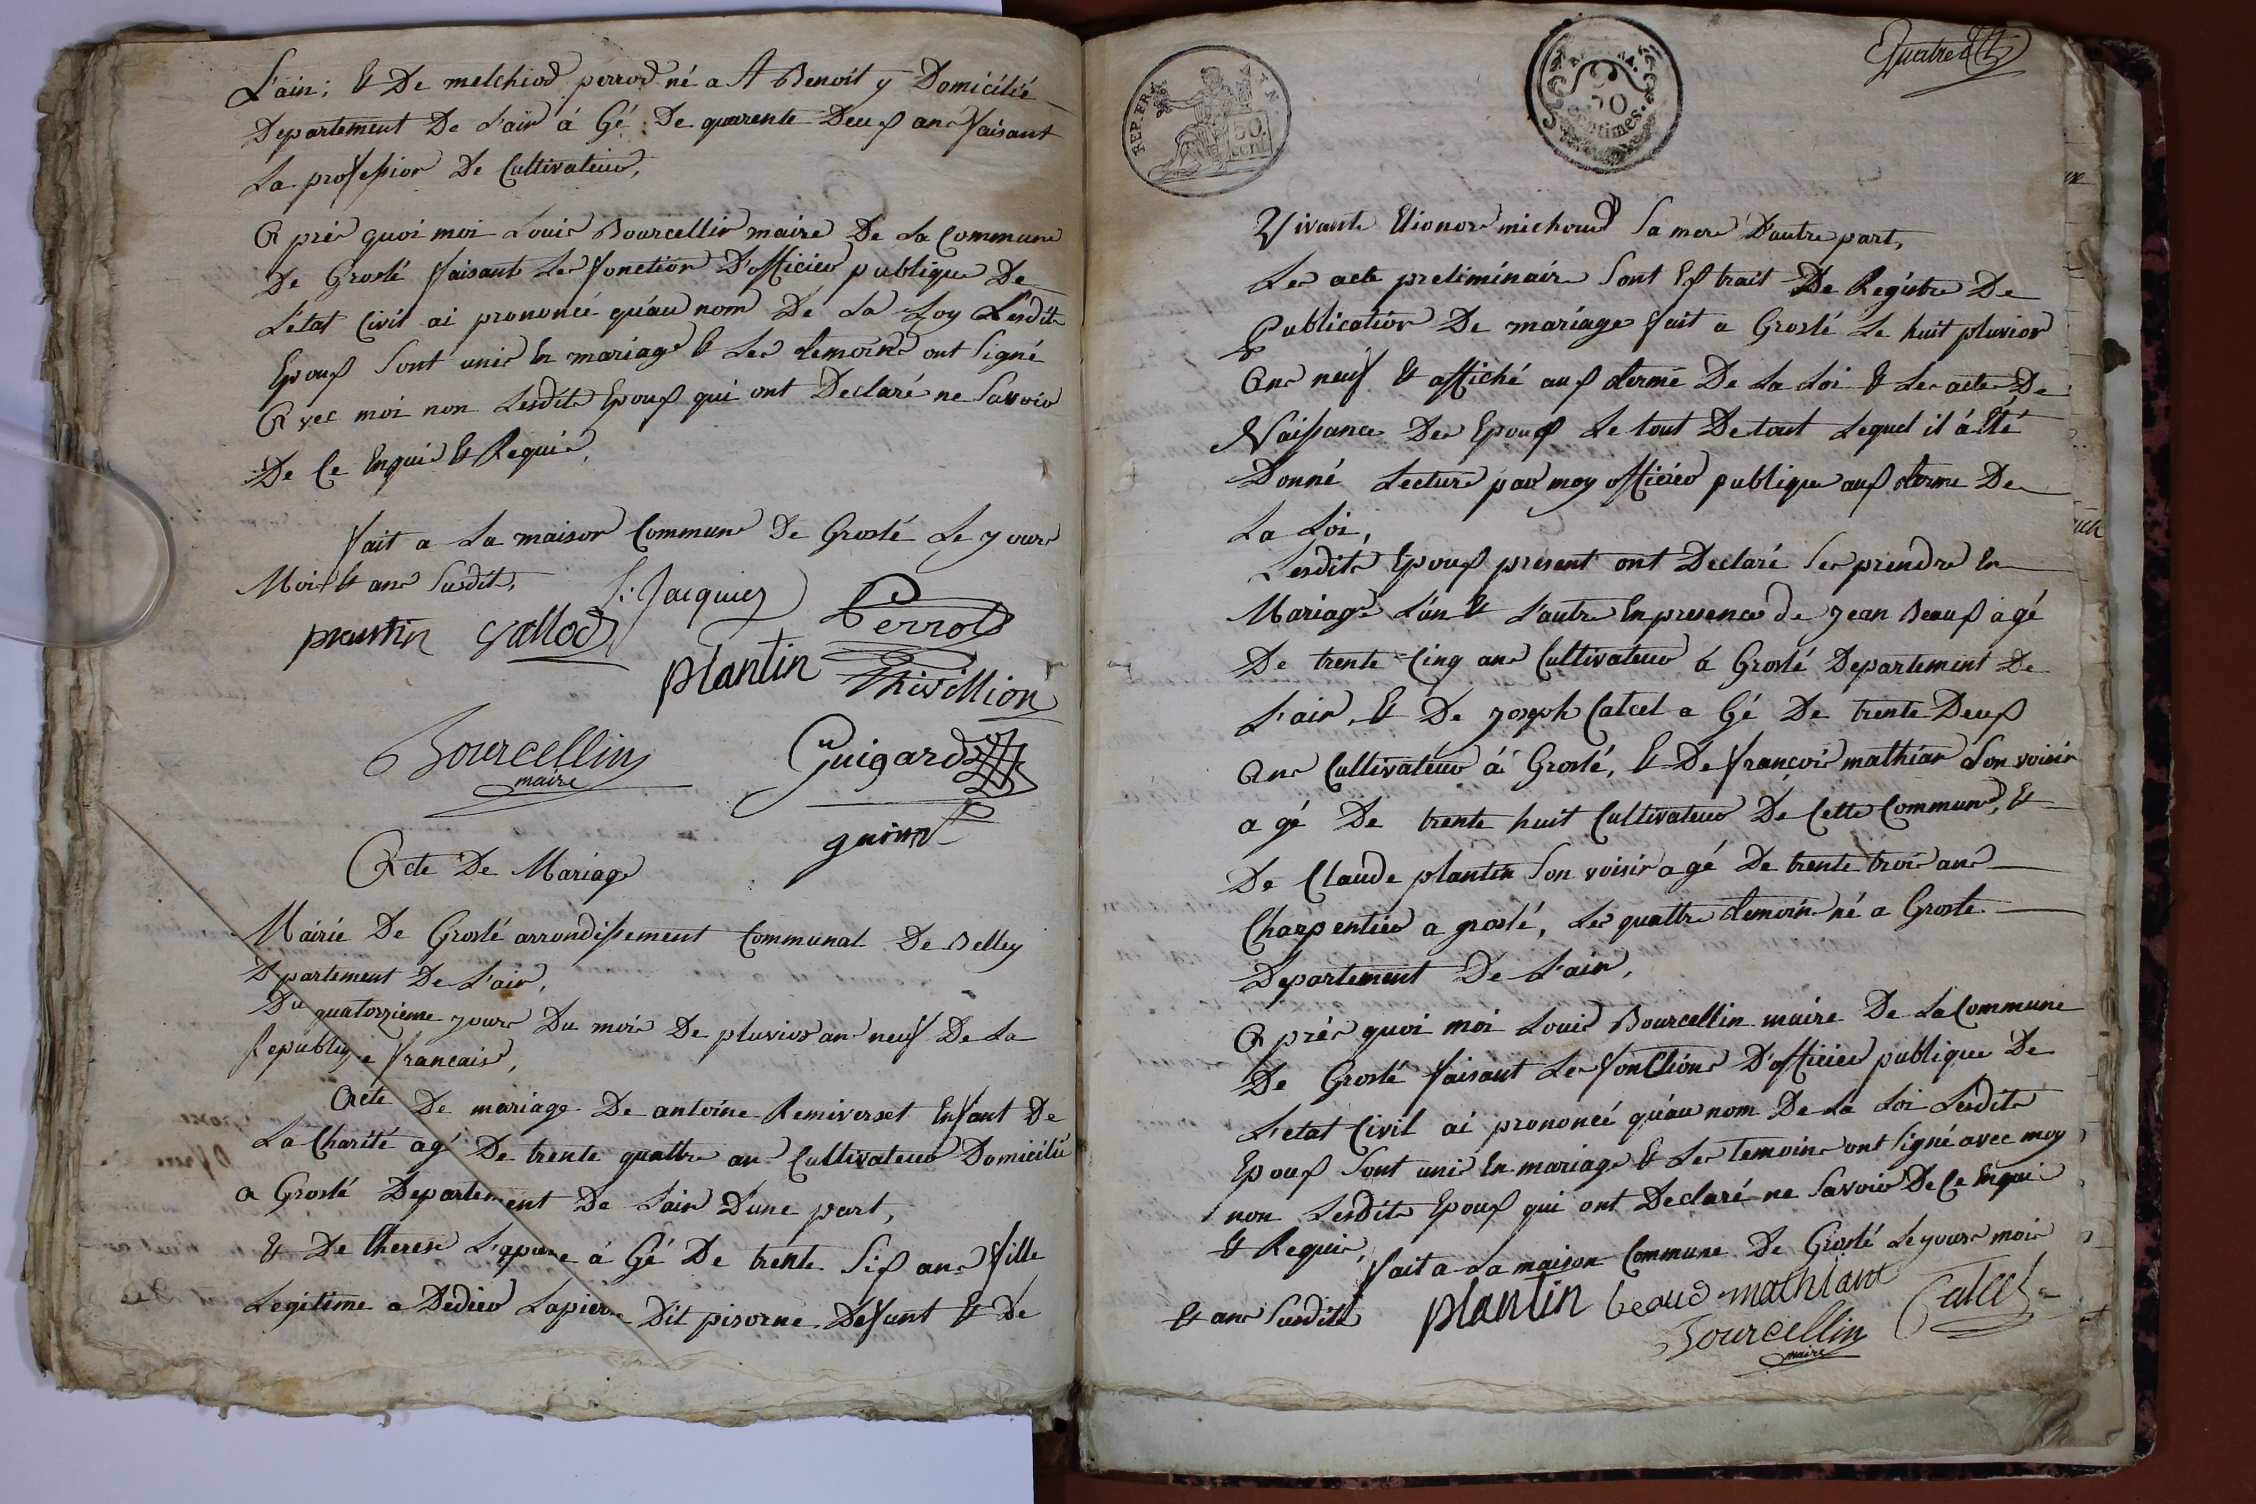 L'ain; & De melchiod perrod né a St Benoit y Domicilié
Departement De L'ain á Gé De quarente Deux ans faisant
La profession De Cultivateur,
Aprés quoi moi Louis Bourcellin maire De La Commune
De Groslé faisant Les fonction D'officier publique De
L'etat Civil ai prononcé qu'au nom De La Loy Lesdits
Epoux Sont unis En mariage & Les temoins ont Signé
Avec moi non Lesdits Epoux qui ont Declaré ne Savoir
De Ce Enquis & Requis,
fait a La maison Commune De Groslé Le jours
Mois & ans Susdits,
S. Jacquier
Perrod
plantin gallod
plantin
Thivillion
Bourcellin
maire
Guigard
Acte De Mariage
Mairie De Groslé arrondissement Communal De Belley
Departement De L'ain,
Du quatorzieme jours Du mois De pluvios an neuf De La
Republique francais,
Acte De mariage De antoine Remiverset Enfant De
La Charité agé De trente quattre an Cultivateur Domicilié
a Groslé Departement De L'ain Dune part,
& De therese Lapierre á Gé De trente Six ans fille
Legitime a Dedier Lapierre Dit pisorne Defunt & De
REP. FRA.
50
cent.
50
centimes.
Quatre
Vivante Elionore michoud Sa mere D'autre part,
Les acte preliminaire Sont Extrait De Régistre De
Publication De mariage fait a Groslé Le huit pluvios
Ans neuf & affiché aux terme De La Loi & Les actes De
Naissance Des Epoux Le tout De tout Lequel il á Été
Donné Lecture par moy officier publique aux terme De
La Loi,
Lesdits Epoux present ont Declaré Se prendre En
Mariage L'un & L'autre En presence de jean Beaux agé
De trente-Cinq ans Cultivateur á Groslé Departement De
L'ain, & De joseph Catcel a Gé De trente Deux
Ans Cultivateur á Groslé, & De francois mathian Son voisin
agé De trente huit Cultivateur De Cette Commune, &
De Claude plantin Son voisin agé De trente trois ans
Charpentier a groslé, Les quattre temoins né a Grosle
Departement De L'ain,
Aprés quoi moi Louis Bourcellin maire De La Commune
De Groslé faisant Les fonctions D'officier publique De
L'etat Civil ai prononcé qu'au nom De La Loi Lesdits
Epoux Sont unis En mariage & Les temoins ont Signé avec moy
non Lesdits Epoux qui ont Declaré ne Savoir De Ce Enquis
& Requis,
fait a La maison Commune De Groslé Le jours mois
& ans Susdits plantin beaud mathiant Catcel
Bourcellin
maire